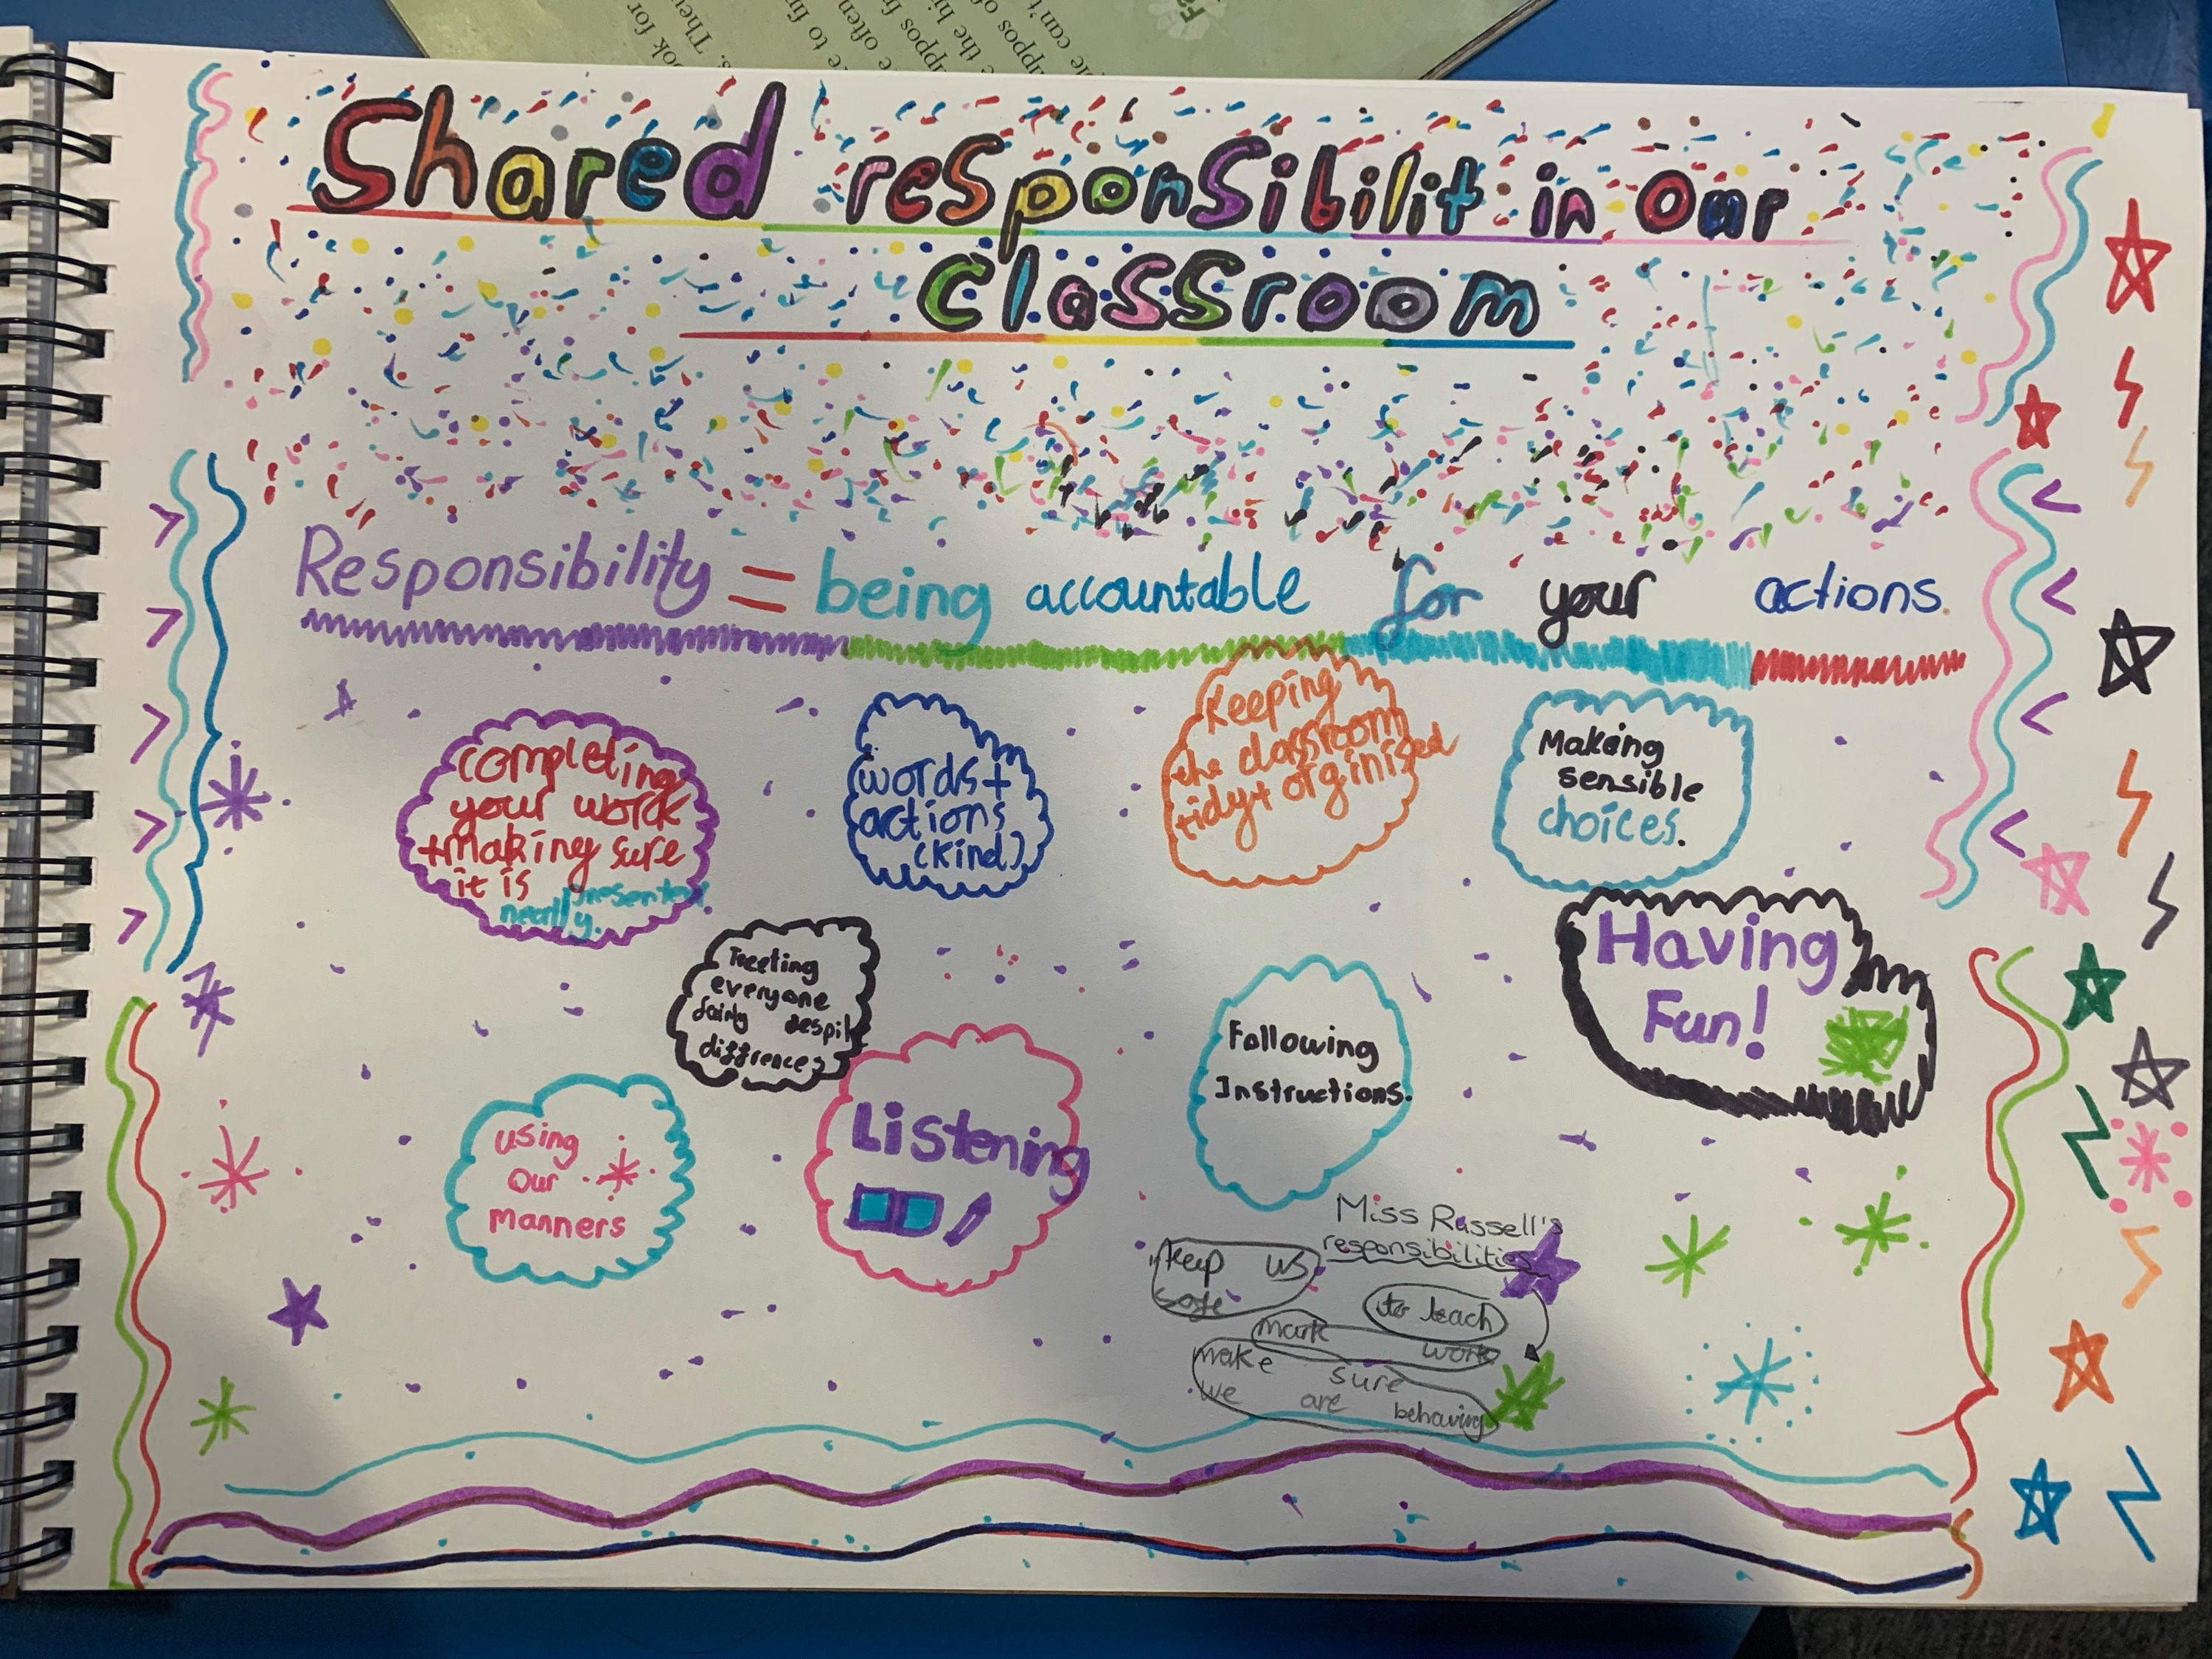 Shared responsibilit in our
classroom
Responsibility = being accountable for your actions.
completing
your work
+ making sure
it is
neatly presented.
words +
actions
(kind)
Keeping
the classroom
tidy + orginised
Making
sensible
choices.
Treeting
everyone
fairly despit
diffrences
Having
Fun!
Following
Instructions.
Listening
using
our
manners
Miss Russell's
responsibilities
keep us
safe
to teach
mark work
make sure
we are behaving